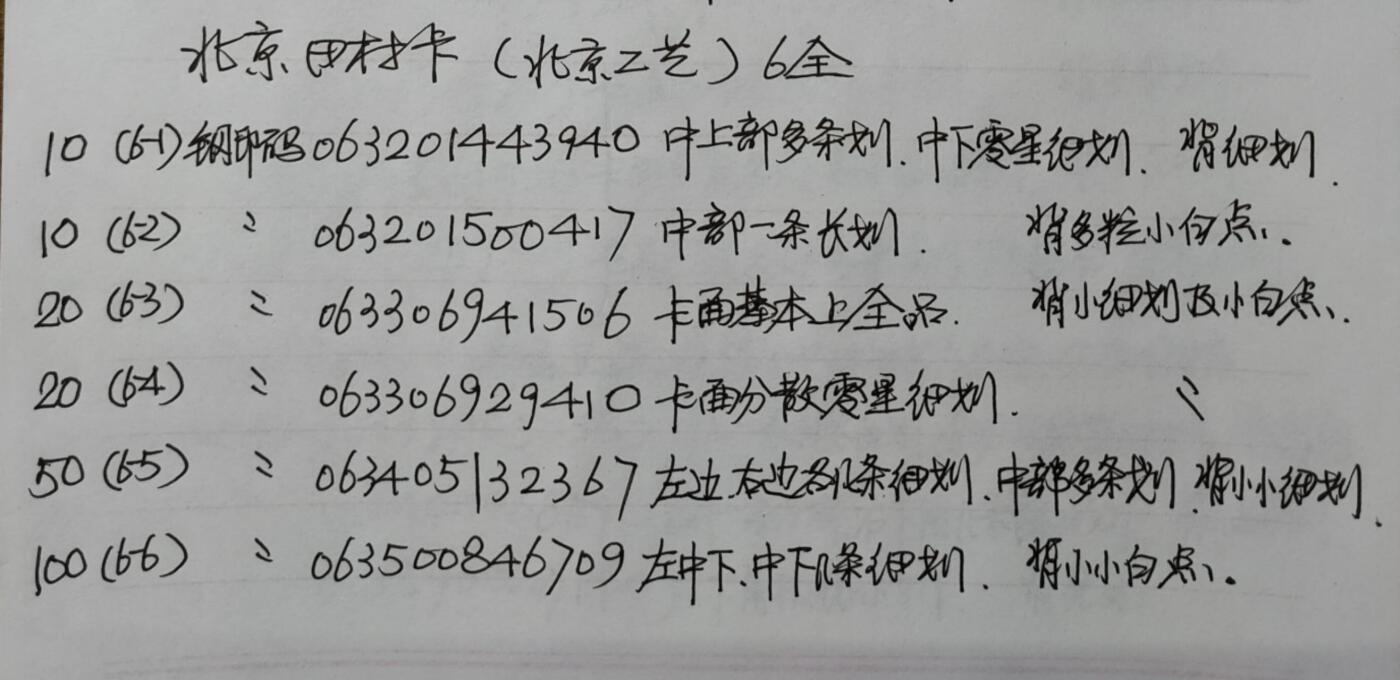 北京田村卡（北京工艺）6全
10 (6-1) 钢印码 063201443940 中上部多条划.中下零星细划. 背细划.
10 (6-2) 〃 063201500417 中部一条长划. 背多粒小白点.
20 (6-3) 〃 063306941506 卡面基本上全品. 背小细划及小白点.
20 (6-4) 〃 063306929410 卡面分散零星细划. 〃
50 (6-5) 〃 063405132367 左边.右边各几条细划.中部多条划.背小小细划.
100 (6-6) 〃 063500846709 左中下.中下几条细划. 背小小白点.